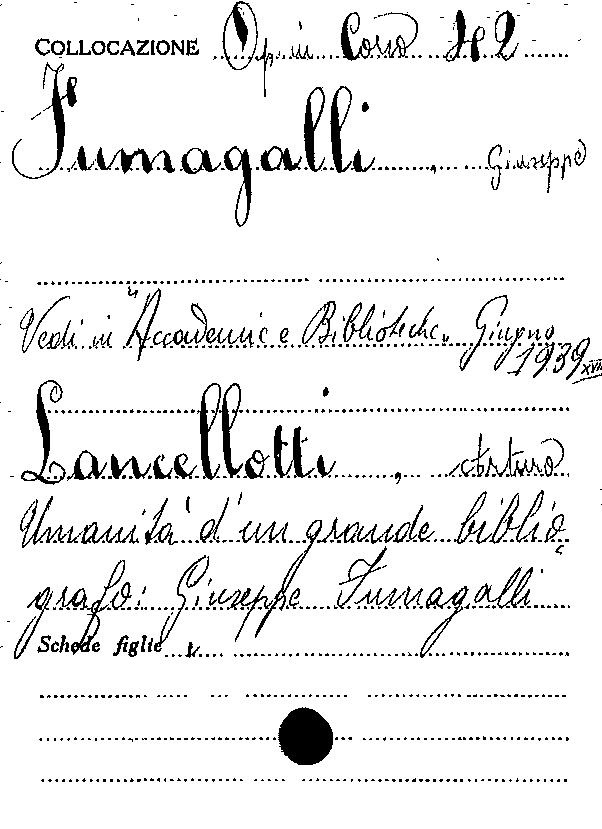 COLLOCAZIONE Op. in Corso H 2
Fumagalli, Giuseppe
Vedi in "Accademie e Biblioteche" Giugno
1939 XVII
Lancellotti, Arturo
Umanità d'un grande biblio=
grafo: Giuseppe Fumagalli
Schede figlie 1